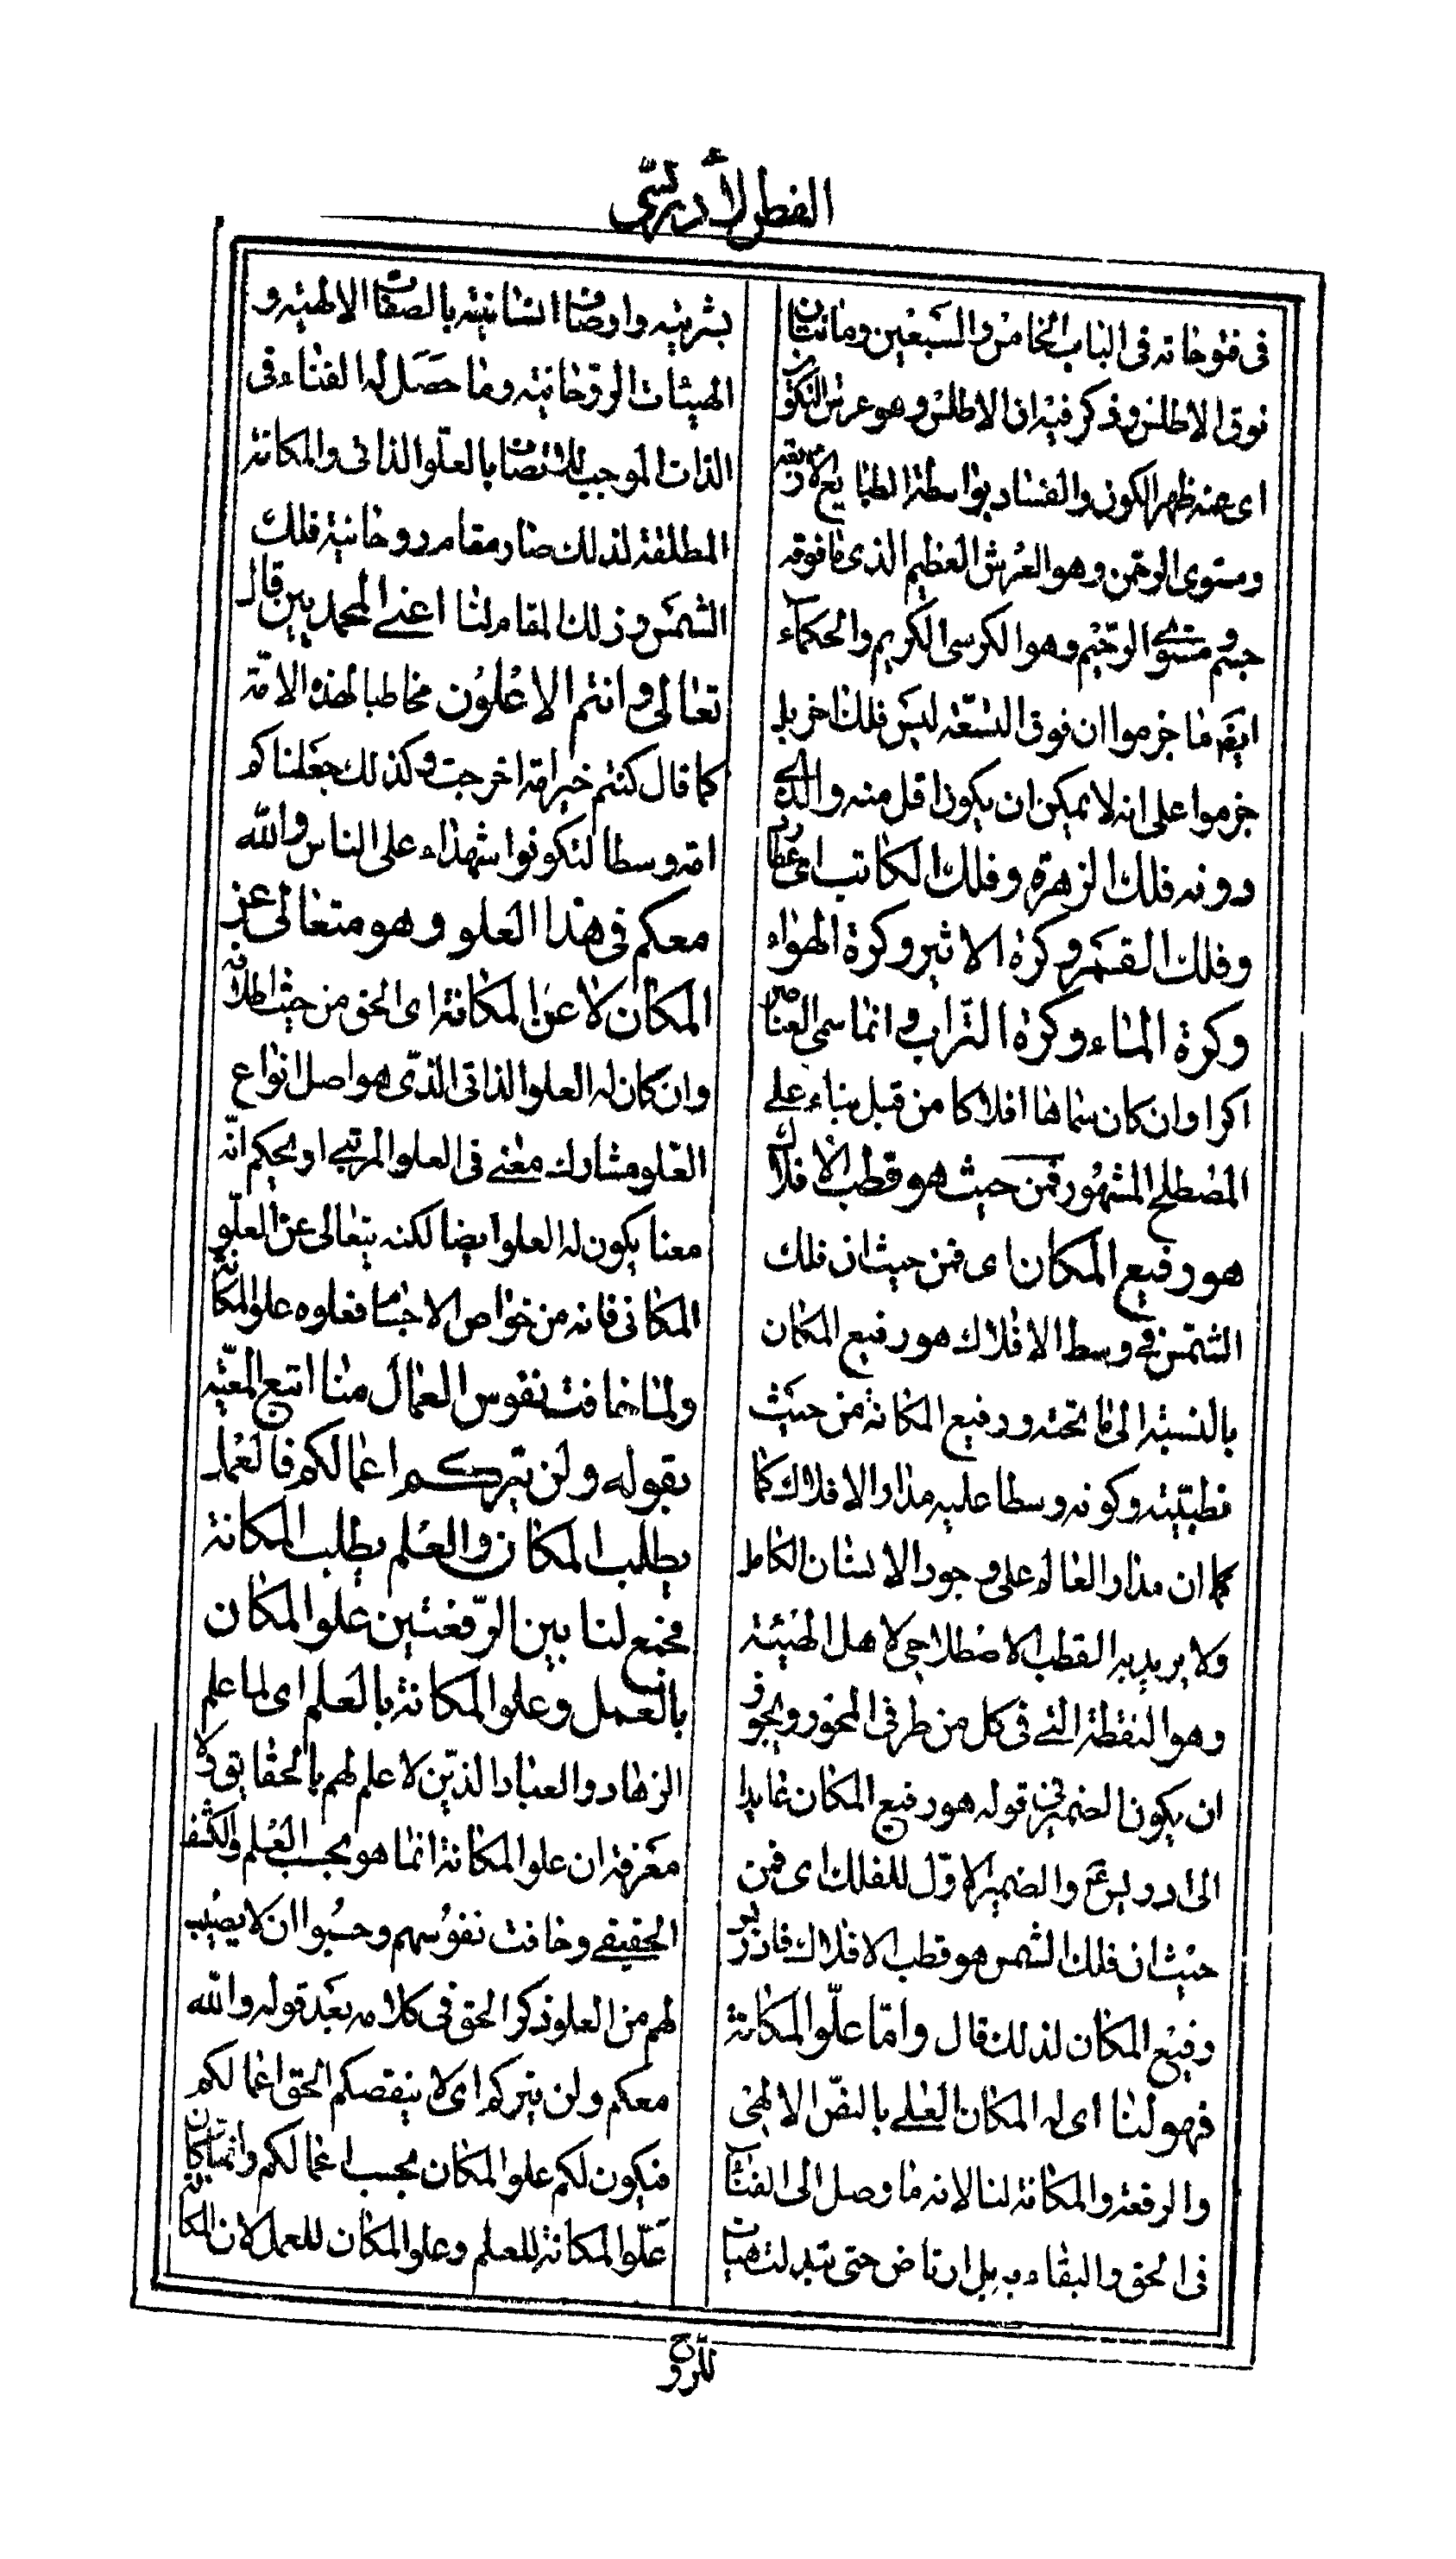 الفص الأدريسّى
فى فتوحاته فى الباب الخامس والسبعين ومائتان
فوق الاطلس وذكر فيه ان الاطلس وهو عرش التكوين
اى عنه ظهر الكون والفساد بواسطة الطبايع الأربعة
ومستوى الرحمن وهو العرش العظيم الذى ما فوقه
جسم ومستوى الرحيم وهو الكرسى الكريم والحكماء
ايضم ما جزموا ان فوق التسعة ليس فلك اخر بل
جزموا على انه لا يمكن ان يكون اقل منه والذى
دونه فلك الزهرة وفلك الكاتب اى عطارد
وفلك القمر وكرة الاثير وكرة الهواء
وكرة الماء وكرة التراب وانما سمى العناصر
اكرا وان كان سماها افلاكا من قبل بناء على
المصطلح المشهور فمن حيث هو قطب الافلاك
هو رفيع المكان اى فمن حيث ان فلك
الشمس فى وسط الافلاك هو رفيع المكان
بالنسبة الى ما تحته ورفيع المكانة من حيث
قطبيته وكونه وسطا عليه مدار الافلاك كما
كما ان مدار العالم على وجود الانسان الكامل
ولا يريد به القطب الاصطلاحى لاهل الهيئة
وهو النقطة التى فى كل من طرفى المحور ويجوز
ان يكون الضمير فى قوله هو رفيع المكان عايدا
الى ادريس ع والضمير الاول للفلك اى فمن
حيث ان فلك الشمس هو قطب الافلاك فادريس
رفيع المكان لذلك قال وامّا علّو المكانة
فهو لنا اى له المكان العلى بالنصّ الالهى
والرفعة والمكانة لنا لانه ما وصل الى الفناء
فى الحق والبقاء به بل ارتاض حتى تبدلت هيات
بشريته واوصاف انسانيته بالصفات الالهيه و
الهيئات الروحانيته وما حصل له الفناء فى
الذات الموجب للاتصاف بالعلّو الذاتى والمكانة
المطلقة لذلك صار مقامه روحانية فلك
الشمس وذلك المقام لنا اعنى المحمديين قال
تعالى وانتم الاعلون مخاطبا لهذه الامّة
كما قال كنتم خير امة اخرجت وكذلك جعلناكم
امة وسطا لتكونوا شهداء على الناس والله
معكم فى هذا العلو وهو متعالى عن
المكان لا عن المكانة اى الحق من حيث اطلاقه
وان كان له العلو الذاتى الذّى هو اصل انواع
العلو مشارك معنى فى العلو المرتبى او بحكم انّه
معنا يكون له العلو ايضا لكنه يتعالى عن العلّو
المكانى فانه من خواص الاجسام فعلوه علو المكانة
ولما خافت نفوس العمال منا اتبع المعيّه
بقوله ولن يتركم اعمالكم فالعمل
يطلب المكان والعلم يطلب المكانة
فجمع لنا بين الرّفعتين علو المكان
بالعمل وعلو المكانة بالعلم اى لما علم
الزهاد والعباد الذّين لا علم لهم بالحقايق ولا
معرفة ان علو المكانة انما هو بحسب العلم والكشف
الحقيقى وخافت نفوسهم وحسبوا ان لا يصيب
لهم من العلو ذكر الحق فى كلامه بعد قوله والله
معكم ولن يتركم اى لا ينقصكم الحق اعمالكم
فيكون لكم علو المكان بحسب اعمالكم وانما كان
علّو المكانة للعلم وعلو المكان للعمل لان المكانة
للروح